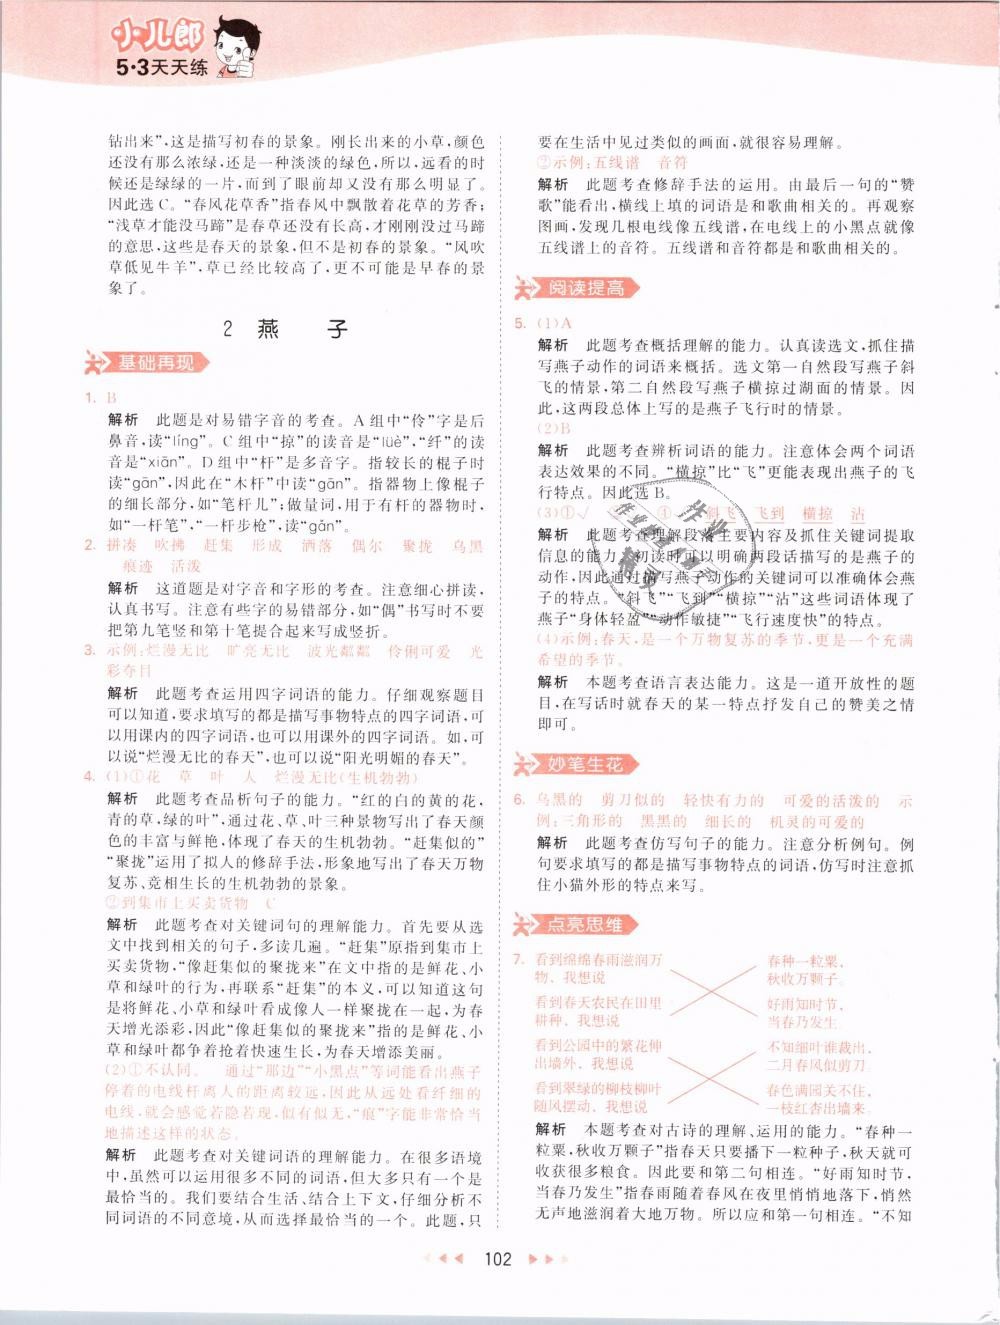 小儿郎
5·3天天练
钻出来”,这是描写初春的景象。刚长出来的小草,颜色
还没有那么浓绿,还是一种淡淡的绿色,所以,远看的时
候还是绿绿的一片,而到了眼前却又没有那么明显了。
因此选C。“春风花草香”指春风中飘散着花草的芳香;
“浅草才能没马蹄”是春草还没有长高,才刚刚没过马蹄
的意思,这些是春天的景象,但不是初春的景象。“风吹
草低见牛羊”,草已经比较高了,更不可能是早春的景
象了。
2 燕 子
基础再现
1. B
解析 此题是对易错字音的考查。A组中“伶”字是后
鼻音,读“líng”。C组中“掠”的读音是“lüè”,“纤”的读
音是“xiān”。D组中“杆”是多音字。指较长的棍子时
读“gān”,因此在“木杆”中读“gān”。指器物上像棍子
的细长部分,如“笔杆儿”;做量词,用于有杆的器物时,
如“一杆笔”,“一杆步枪”,读“gǎn”。
2. 拼凑 吹拂 赶集 形成 洒落 偶尔 聚拢 乌黑
痕迹 活泼
解析 这道题是对字音和字形的考查。注意细心拼读,
认真书写。注意有些字的易错部分,如“偶”书写时不要
把第九笔竖和第十笔提合起来写成竖折。
3. 示例:烂漫无比 旷亮无比 波光粼粼 伶俐可爱 光
彩夺目
解析 此题考查运用四字词语的能力。仔细观察题目
可以知道,要求填写的都是描写事物特点的四字词语,可
以用课内的四字词语,也可以用课外的四字词语。如,可
以说“烂漫无比的春天”,也可以说“阳光明媚的春天”。
4. (1)①花 草 叶 人 烂漫无比(生机勃勃)
解析 此题考查品析句子的能力。“红的白的黄的花,
青的草,绿的叶”,通过花、草、叶三种景物写出了春天颜
色的丰富与鲜艳,体现了春天的生机勃勃。“赶集似的”
“聚拢”运用了拟人的修辞手法,形象地写出了春天万物
复苏、竞相生长的生机勃勃的景象。
②到集市上买卖货物 C
解析 此题考查对关键词句的理解能力。首先要从选
文中找到相关的句子,多读几遍。“赶集”原指到集市上
买卖货物,“像赶集似的聚拢来”在文中指的是鲜花、小
草和绿叶的行为,再联系“赶集”的本义,可以知道这句
是将鲜花、小草和绿叶看成像人一样聚拢在一起,为春
天增光添彩,因此“像赶集似的聚拢来”指的是鲜花、小
草和绿叶都争着抢着快速生长,为春天增添美丽。
(2)①不认同。 通过“那边”“小黑点”等词能看出燕子
停着的电线杆离人的距离较远,因此从远处看纤细的
电线,就会感觉若隐若现,似有似无,“痕”字能非常恰当
地描述这样的状态。
解析 此题考查对关键词语的理解能力。在很多语境
中,虽然可以运用很多不同的词语,但大多只有一个是
最恰当的。我们要结合生活、结合上下文,仔细分析不
同词语的不同意境,从而选择最恰当的一个。此题,只
要在生活中见过类似的画面,就很容易理解。
②示例:五线谱 音符
解析 此题考查修辞手法的运用。由最后一句的“赞
歌”能看出,横线上填的词语是和歌曲相关的。再观察
图画,发现几根电线像五线谱,在电线上的小黑点就像
五线谱上的音符。五线谱和音符都是和歌曲相关的。
阅读提高
5. (1)A
解析 此题考查概括理解的能力。认真读选文,抓住描
写燕子动作的词语来概括。选文第一自然段写燕子斜
飞的情景,第二自然段写燕子横掠过湖面的情景。因
此,这两段总体上写的是燕子飞行时的情景。
(2)B
解析 此题考查辨析词语的能力。注意体会两个词语
表达效果的不同。“横掠”比“飞”更能表现出燕子的飞
行特点。因此选B。
(3)①√ ④ 斜飞 飞到 横掠 沾
解析 此题考查理解段落主要内容及抓住关键词提取
信息的能力。初读时可以明确两段话描写的是燕子的
动作,因此通过描写燕子动作的关键词可以准确体会燕
子的特点。“斜飞”“飞到”“横掠”“沾”这些词语体现了
燕子“身体轻盈”“动作敏捷”“飞行速度快”的特点。
(4)示例:春天,是一个万物复苏的季节,更是一个充满
希望的季节。
解析 本题考查语言表达能力。这是一道开放性的题
目,在写话时就春天的某一特点抒发自己的赞美之情
即可。
妙笔生花
6. 乌黑的 剪刀似的 轻快有力的 可爱的活泼的 示
例:三角形的 黑黑的 细长的 机灵的可爱的
解析 此题考查仿写句子的能力。注意分析例句。例
句要求填写的都是描写事物特点的词语,仿写时注意抓
住小猫外形的特点来写。
点亮思维
7. 看到绵绵春雨滋润万
物、我想说
春种一粒粟,
秋收万颗子。
看到春天农民在田里
耕种、我想说
好雨知时节,
当春乃发生。
看到公园中的繁花伸
出墙外、我想说
不知细叶谁裁出,
二月春风似剪刀。
看到翠绿的柳枝柳叶
随风摆动、我想说
春色满园关不住,
一枝红杏出墙来。
解析 本题考查对古诗的理解、运用的能力。“春种一
粒粟,秋收万颗子”指春天只要播下一粒种子,秋天就可
收获很多粮食。因此要和第二句相连。“好雨知时节,
当春乃发生”指春雨随着春风在夜里悄悄地落下,悄然
无声地滋润着大地万物。所以应和第一句相连。“不知
102
作业
精灵